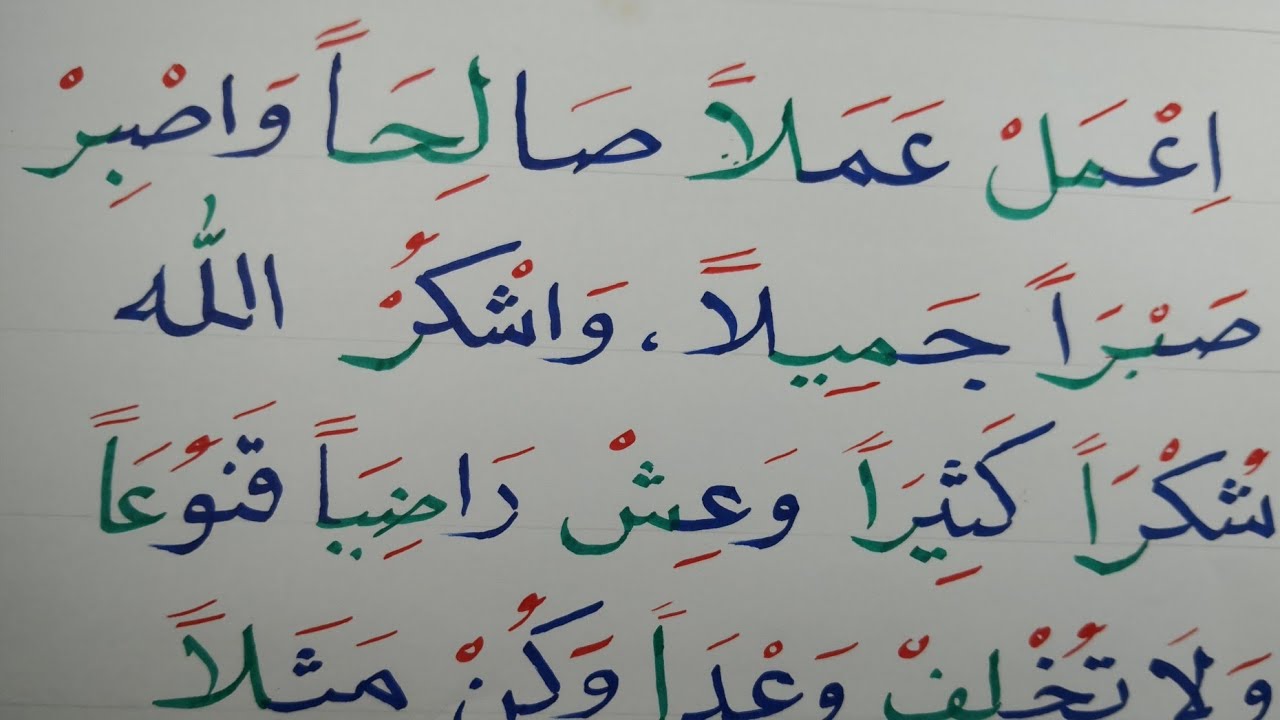 اِعْمَلْ عَمَلاً صَالِحَاً وَاصْبِرْ
صَبْرَاً جَمِيلاً، وَاشْكُرْ اللّٰه
شُكْرَاً كَثِيرَاً وَعِشْ رَاضِيَاً قَنُوعَاً
وَلاَ تُخْلِفْ وَعْدَاً وَكُنْ مَثَلاً